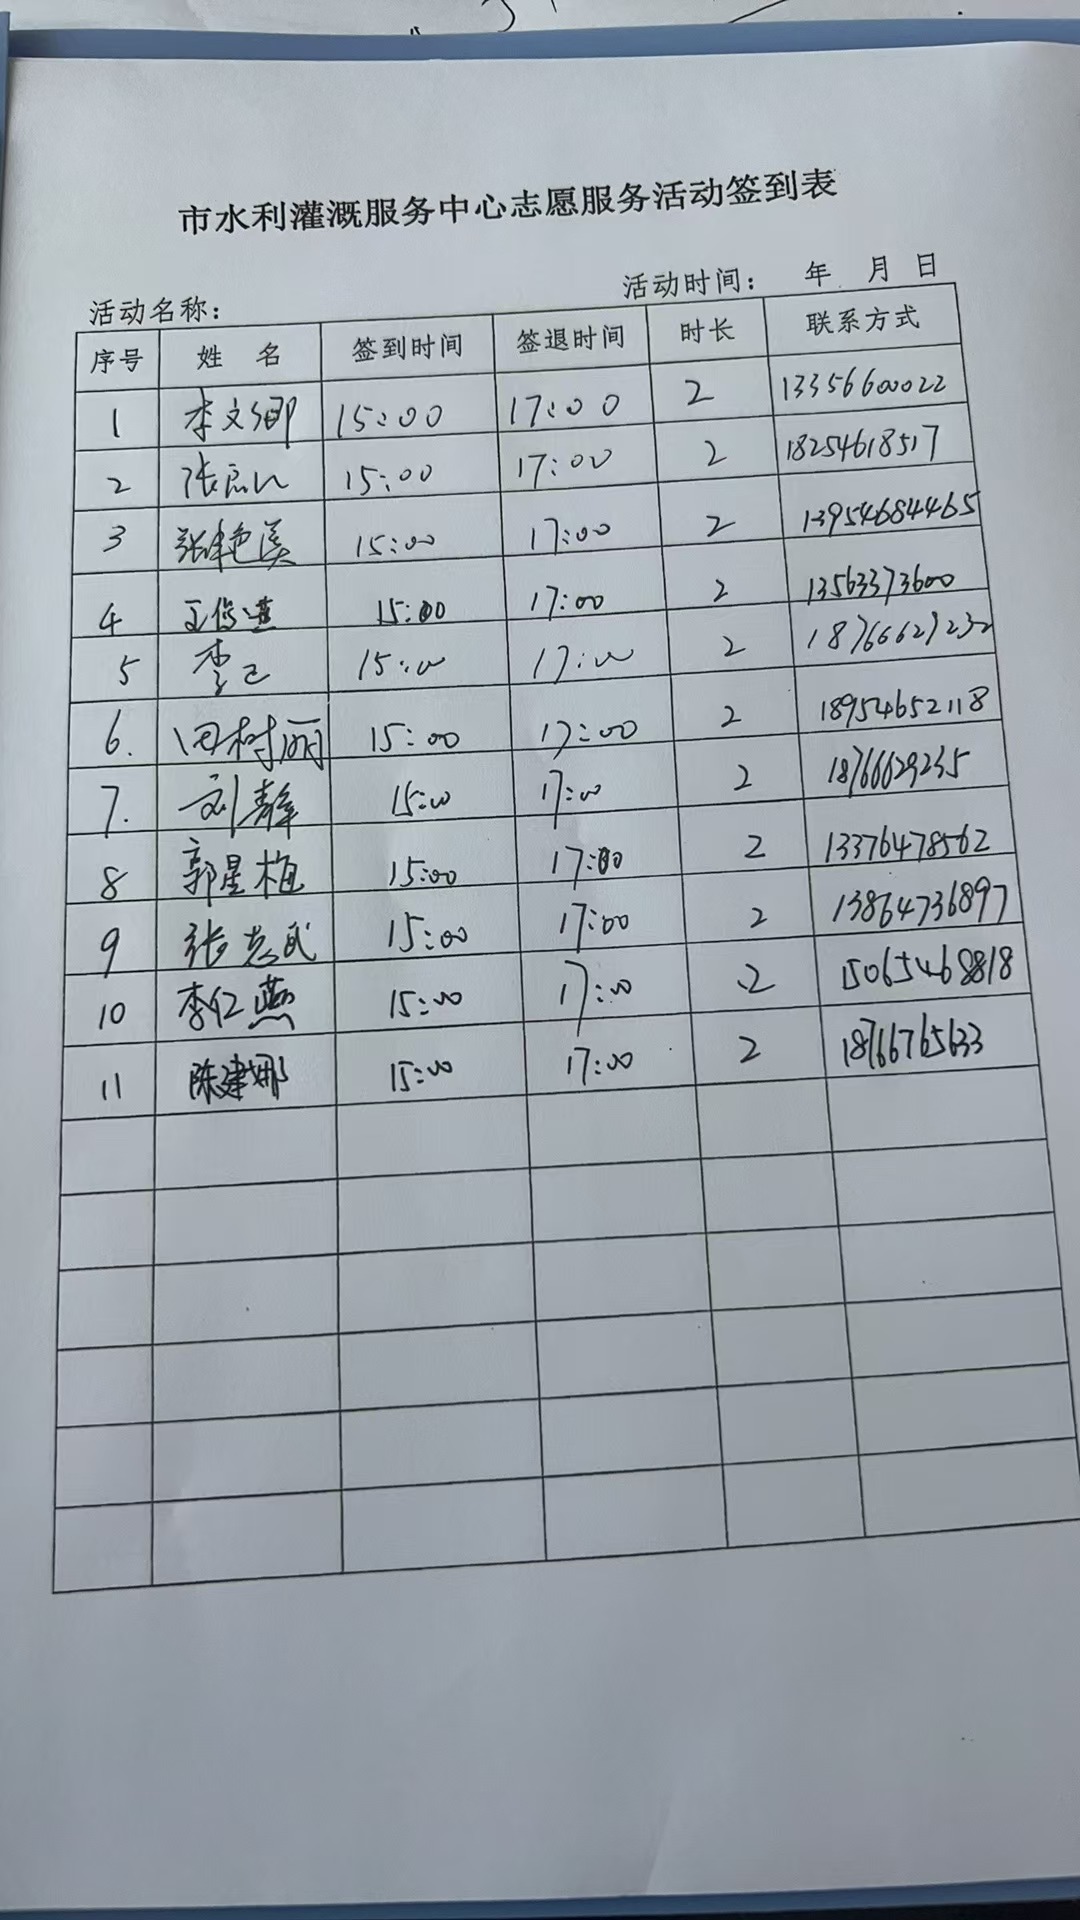 市水利灌溉服务中心志愿服务活动签到表
活动名称： 活动时间： 年 月 日
序号 姓 名 签到时间 签退时间 时长 联系方式
1 李文卿 15:00 17:00 2 13356600022
2 15:00 17:00 2 18254618517
3 张艳溪 15:00 17:00 2 13954684465
4 15:00 17:00 2 13563373600
5 15:00 17:00 2 18766629232
6. 田树丽 15:00 17:00 2 18954652118
7. 刘静 15:00 17:00 2 18766629235
8 郭星柏 15:00 17:00 2 13376478562
9 张志武 15:00 17:00 2 13864736897
10 李仁燕 15:00 17:00 2 15065468818
11 陈建娜 15:00 17:00 2 18766765633